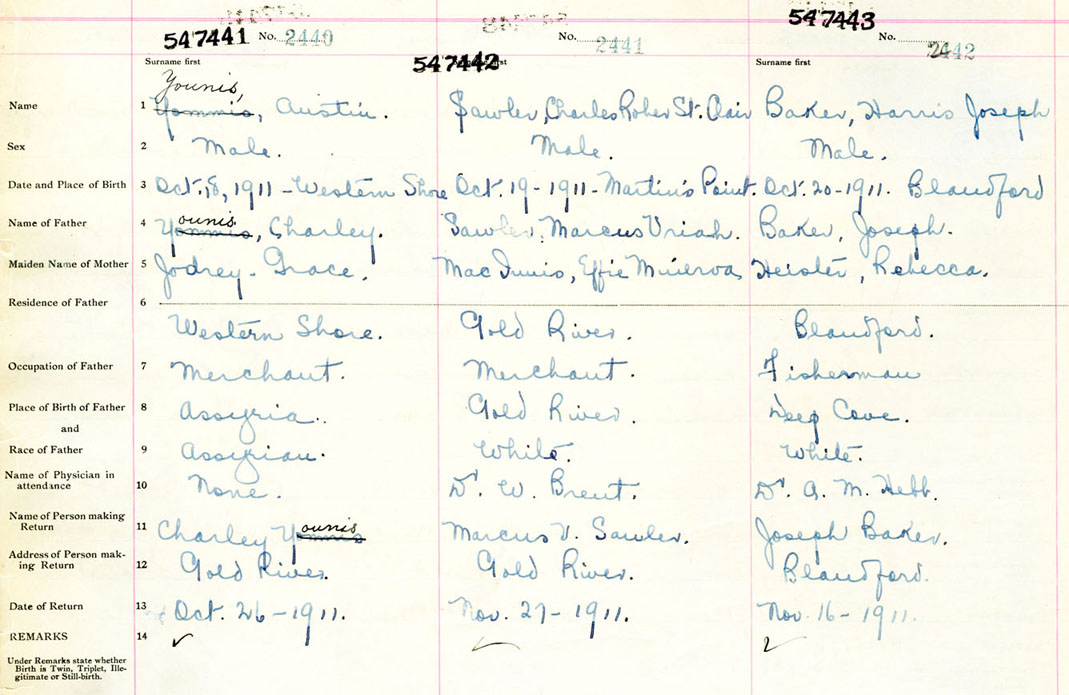 547441 No. 2440 No. 2441 547443 No. 2442
Surname first 547442 first Surname first
Younis,
Name 1 Yommis, Austin. Sawler, Charles Rober St. Clair Baker, Harris Joseph
Sex 2 Male. Male. Male.
Date and Place of Birth 3 Oct. 18, 1911 - Western Shore Oct. 19 - 1911 - Martin's Point. Oct. 20 - 1911. Blandford
ounis
Name of Father 4 Yommis, Charley. Sawler, Marcus Uriah. Baker, Joseph.
Maiden Name of Mother 5 Jodrey - Grace. MacInnis, Effie Minerva Heisler, Rebecca.
Residence of Father 6
Western Shore. Gold River. Blandford.
Occupation of Father 7 Merchant. Merchant. Fisherman
Place of Birth of Father 8 Assyria. Gold River Deep Cove.
and
Race of Father 9 Assyrian. White. White.
Name of Physician in
attendance 10 None. Dr. W. Brent. Dr. A. M. Hebb.
Name of Person making
Return 11 Charley Yommis ounis Marcus U. Sawler. Joseph Baker.
Address of Person mak-
ing Return 12 Gold River. Gold River. Blandford.
Date of Return 13 Oct. 26 - 1911. Nov. 27 - 1911. Nov. 16 - 1911.
REMARKS 14
Under Remarks state whether
Birth is Twin, Triplet, Ille-
gitimate or Still-birth.